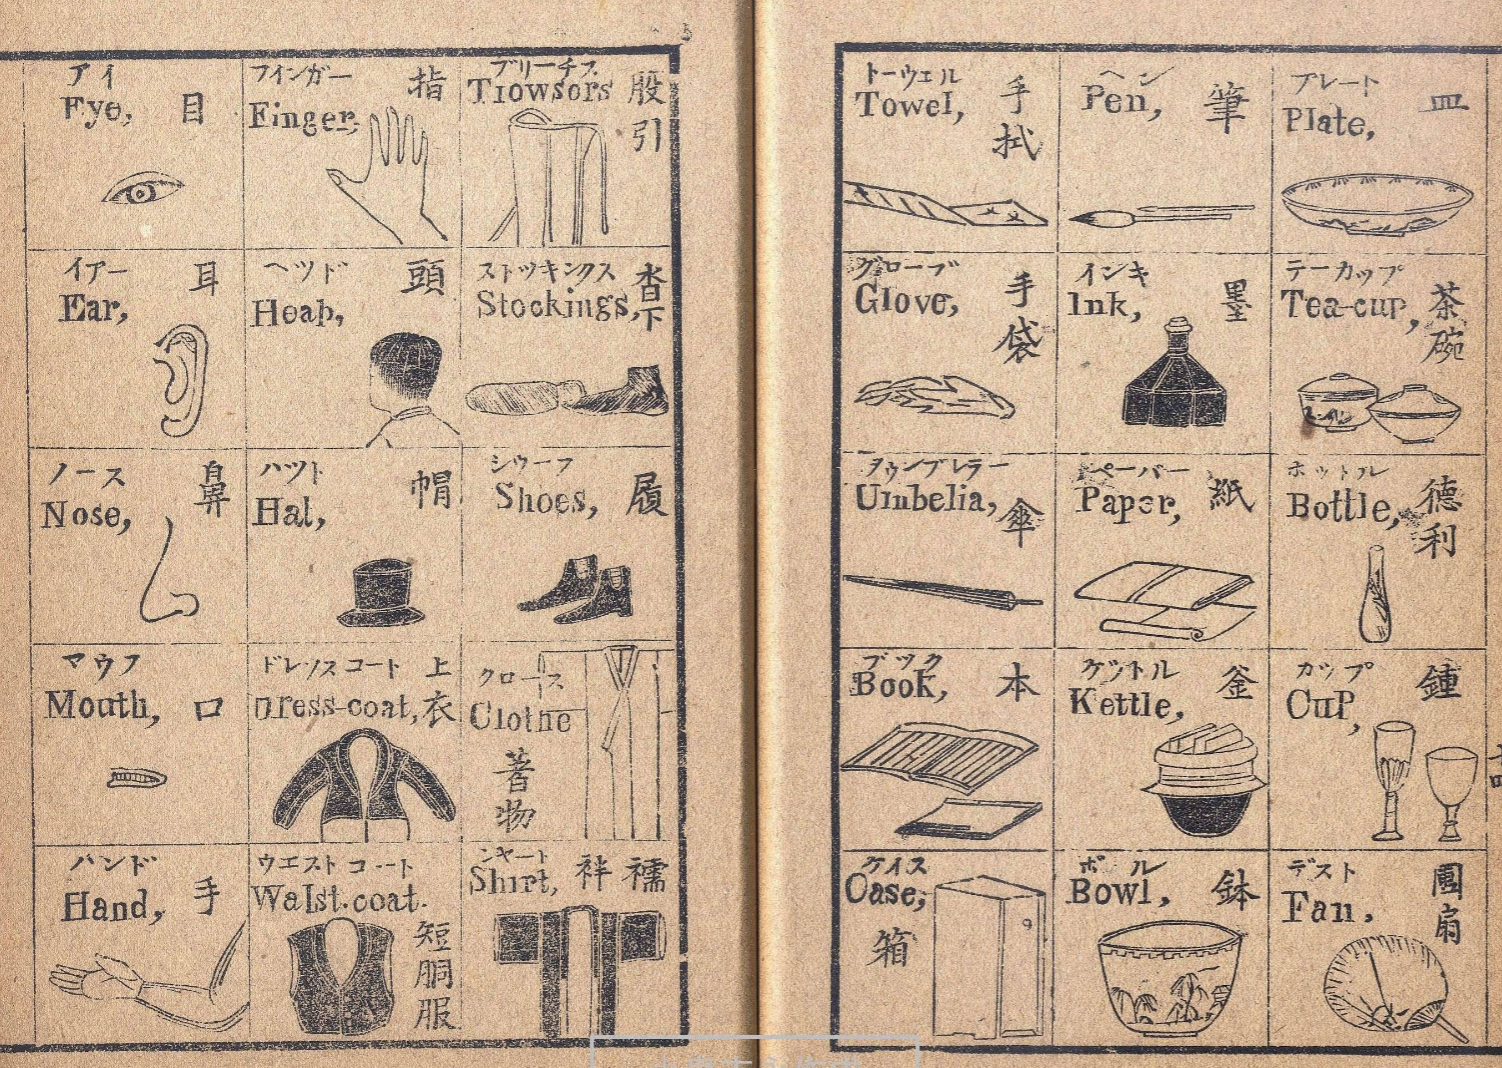 アイ
Eye,
目
フインガー
Finger,
指
ブリーチス
Tiowsors
股引
イアー
Ear,
耳
ヘツド
Heab,
頭
ストツキンクス
Stockings,
沓下
ノース
Nose,
鼻
ハツト
Hal,
帽
シウーフ
Shoes,
履
マウフ
Mouth,
口
ドレツスコート
Dress-coat,
上衣
クロース
Clothe
著物
ハンド
Hand,
手
ウエストコート
Waist.coat.
短胴服
シヤート
Shirt,
袢襦
トーウェル
Towel,
手拭
ペン
Pen,
筆
プレート
Plate,
皿
グローブ
Glove,
手袋
インキ
Ink,
墨
テーカップ
Tea-cup,
茶碗
Umbelia,
傘
ペーパー
Paper,
紙
Bottle,
德利
ブック
Book,
本
ケツトル
Kettle,
釜
カップ
Cup,
鍾
ケイス
Case,
箱
ボール
Bowl,
鉢
デスト
Fan,
團扇